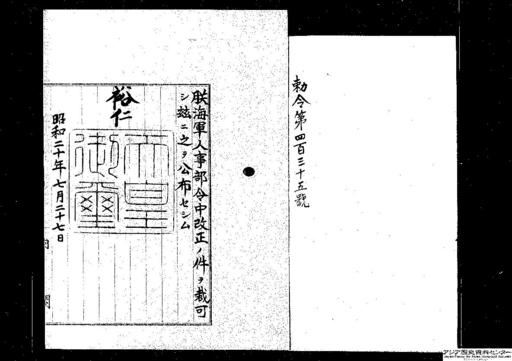 勅令第四百三十五號
朕海軍人事部令中改正ノ件ヲ裁可
シ茲ニ之ヲ公布セシム
裕仁
天皇御璽
昭和二十年七月二十七日
アジア歴史資料センター